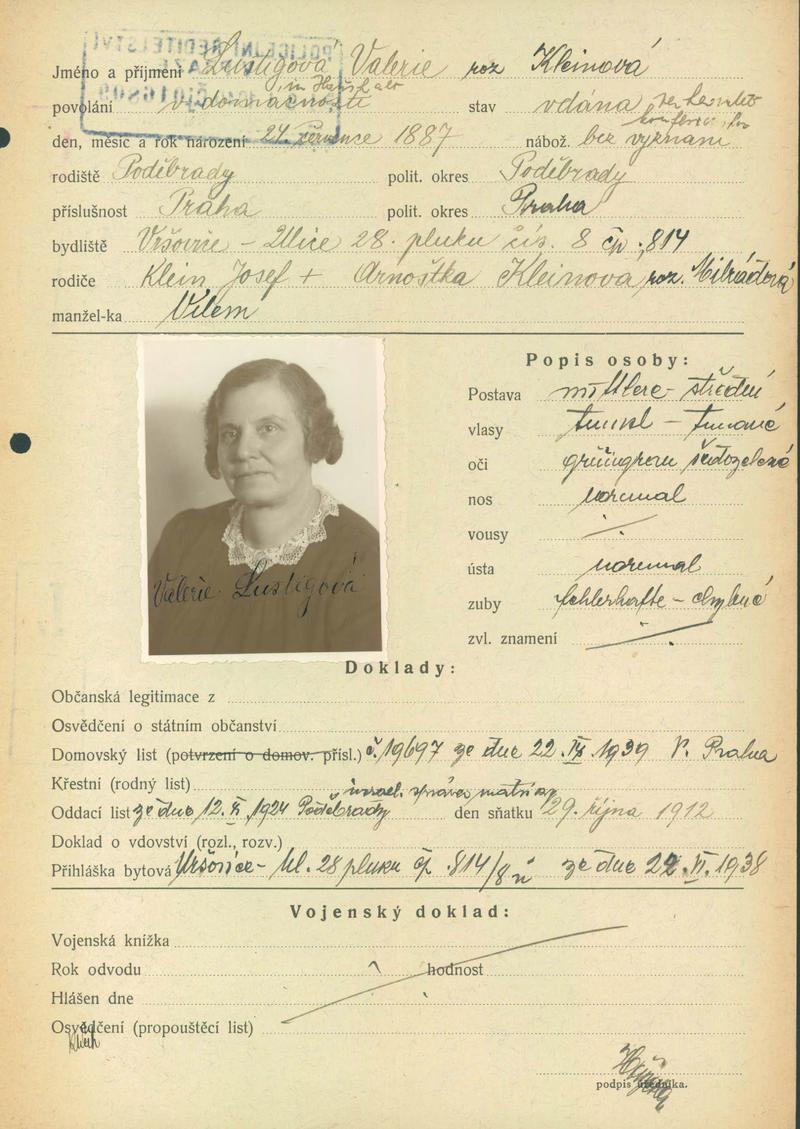 POLICEJNÍ ŘEDITELSTVÍ
Jméno a příjmení Lustigová Valerie roz Kleinová
im Haushalt
povolání v domácnosti stav vdána verheiratet
konfessionslos
den, měsíc a rok narození 24. července 1887 nábož. bez vyznání
rodiště Poděbrady polit. okres Poděbrady
příslušnost Praha polit. okres Praha
bydliště Vršovice - Ulice 28. pluku čís. 8 čp. 814
rodiče Klein Josef + Arnoštka Kleinova roz. Milrádová
manžel-ka Vilém
Popis osoby:
Postava mittlere - střední
vlasy tunkl - tmavé
oči grüngrau šedozelené
nos normal
vousy
ústa normal
zuby fehlerhafte - chybné
zvl. znamení
Valerie Lustigová
Doklady:
Občanská legitimace z
Osvědčení o státním občanství
Domovský list (potvrzení o domov. přísl.) č. 19697 ze dne 22. IX. 1939 V. Praha
Křestní (rodný list)
israel. správa matrik
Oddací list ze dne 12. X. 1924 Poděbrady den sňatku 29. října 1912
Doklad o vdovství (rozl., rozv.)
Přihláška bytová Vršovice - Ul. 28 pluku čp. 814/8 n ze dne 22. VI. 1938
Vojenský doklad:
Vojenská knížka
Rok odvodu hodnost
Hlášen dne
Osvědčení (propouštěcí list)
podpis úředníka.